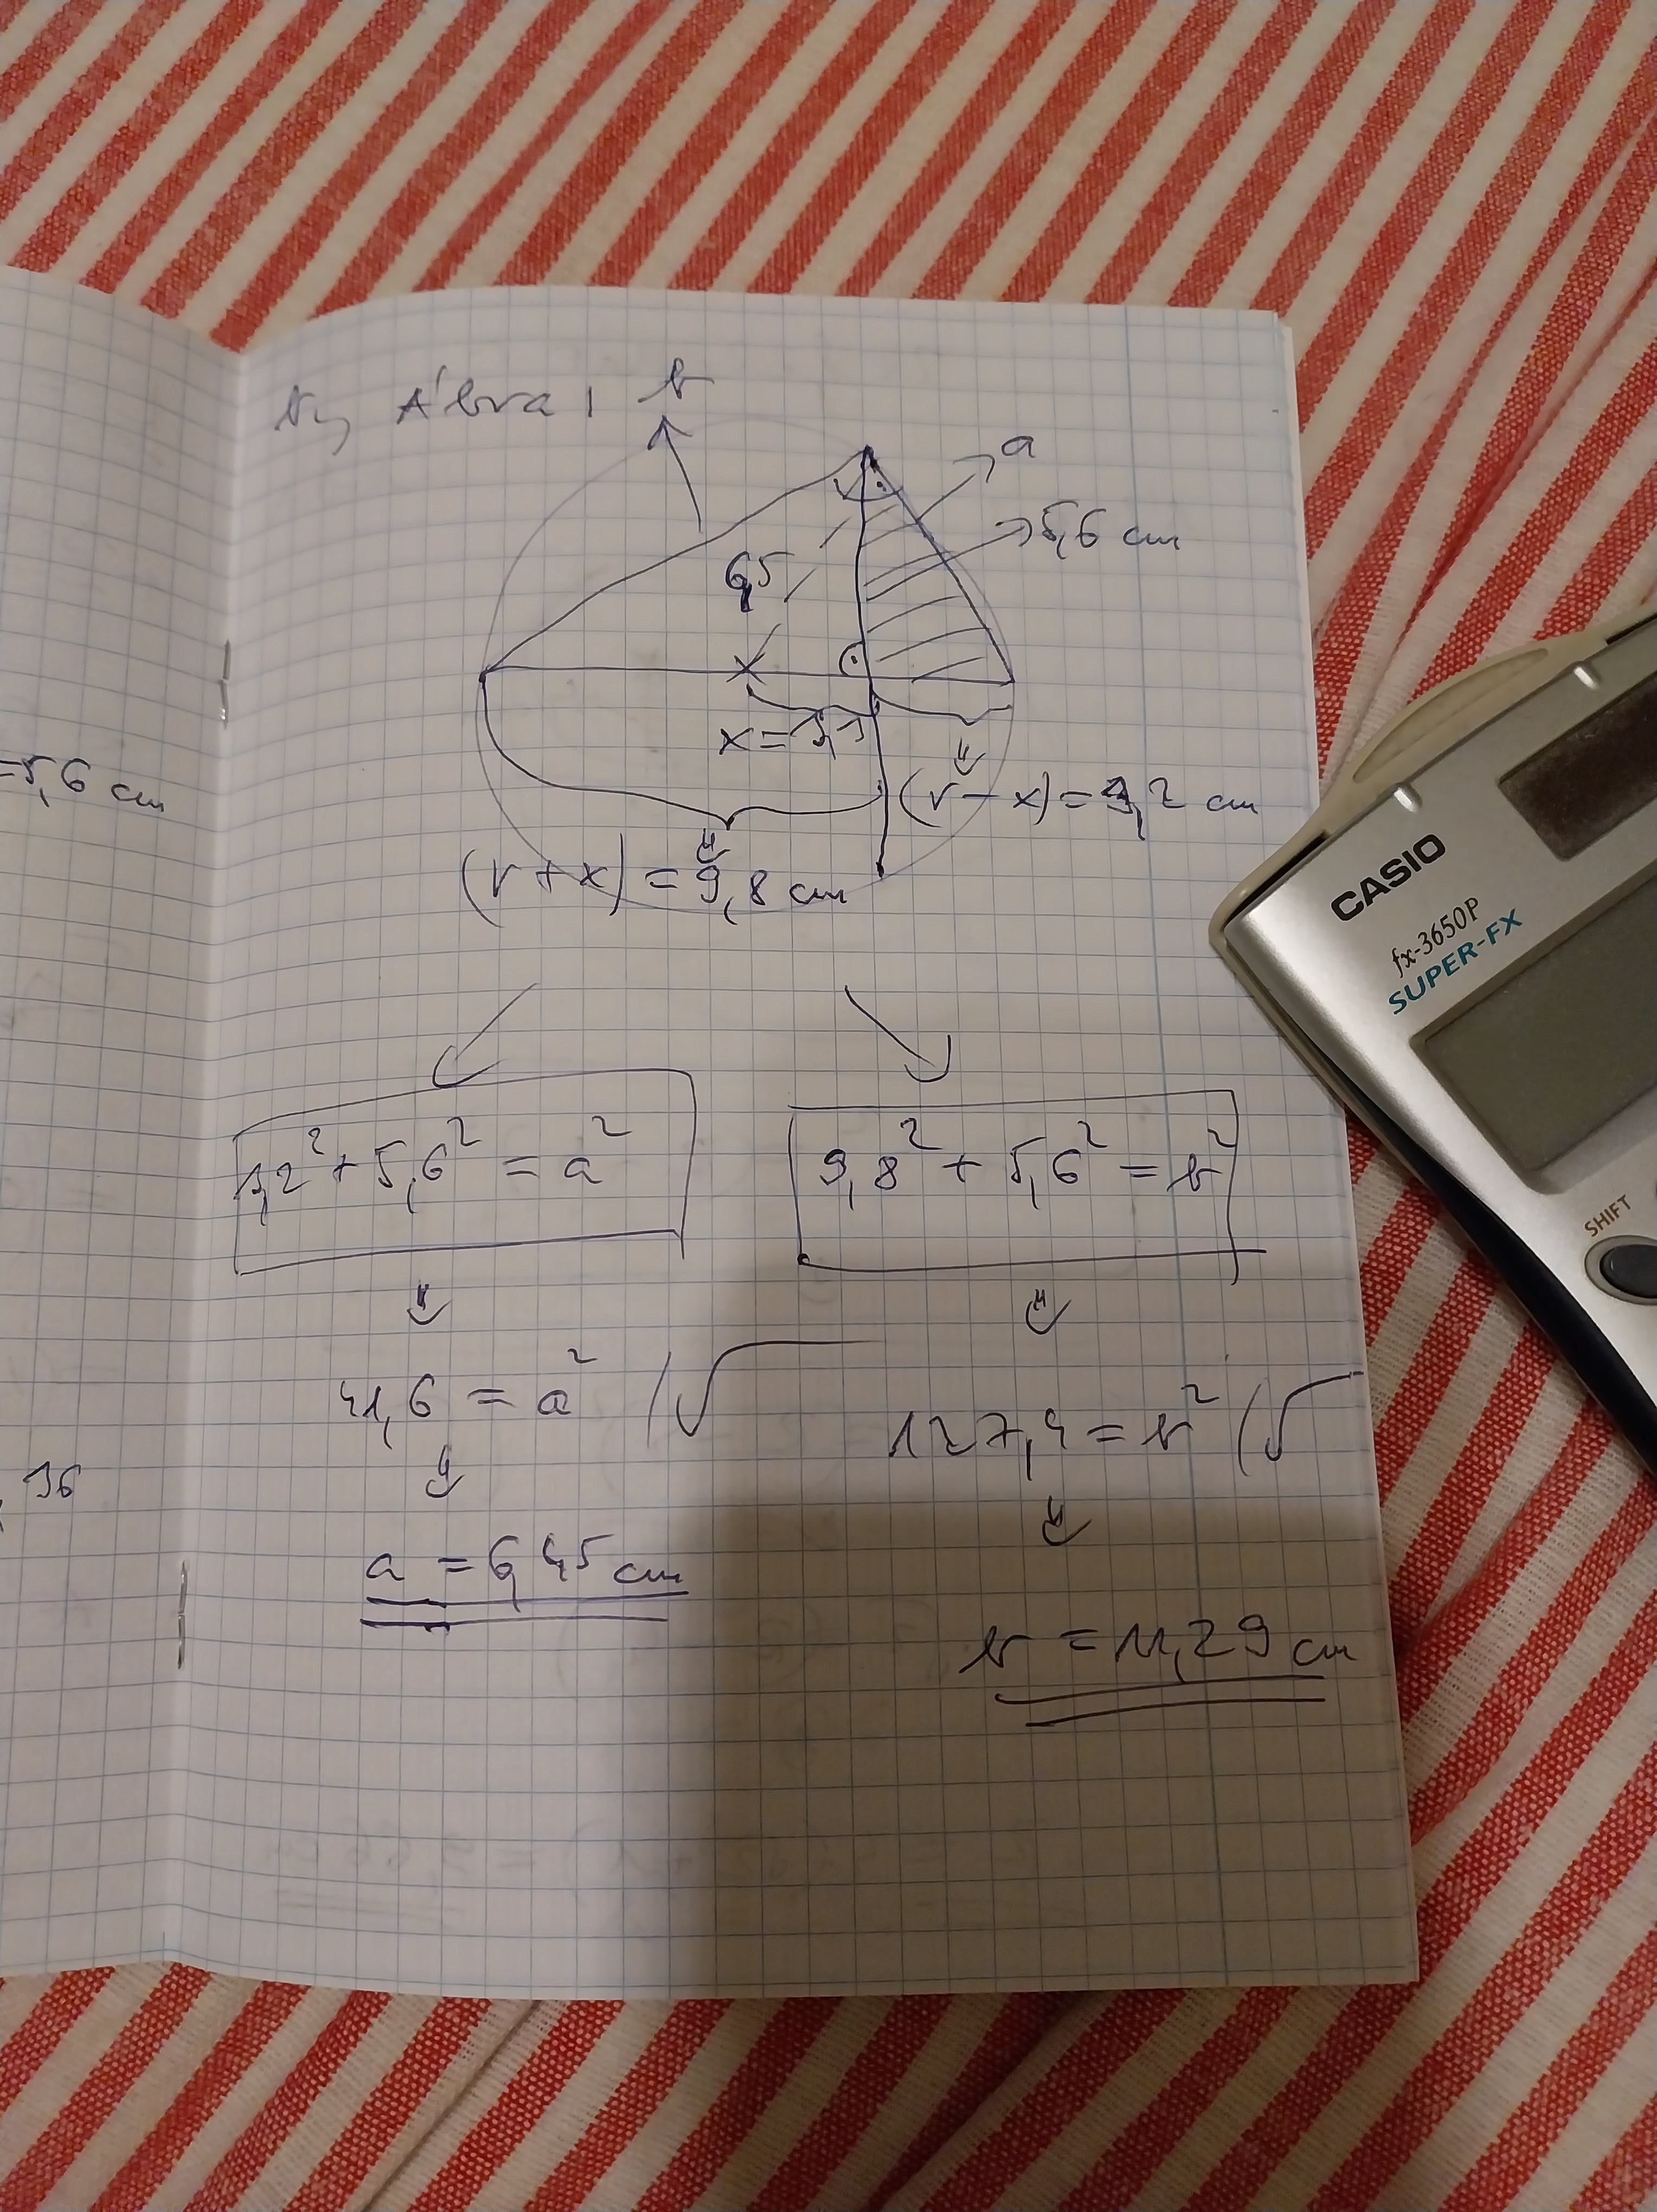 b, Ábra: b
a
5,6 cm
6,5
x = 3,3
(r - x) = 3,2 cm
= 5,6 cm
(r + x) = 9,8 cm
3,2² + 5,6² = a²
9,8² + 5,6² = b²
41,6 = a² /√
127,4 = b² /√
36
a = 6,45 cm
b = 11,29 cm
CASIO
fx-3650P
SUPER-FX
SHIFT